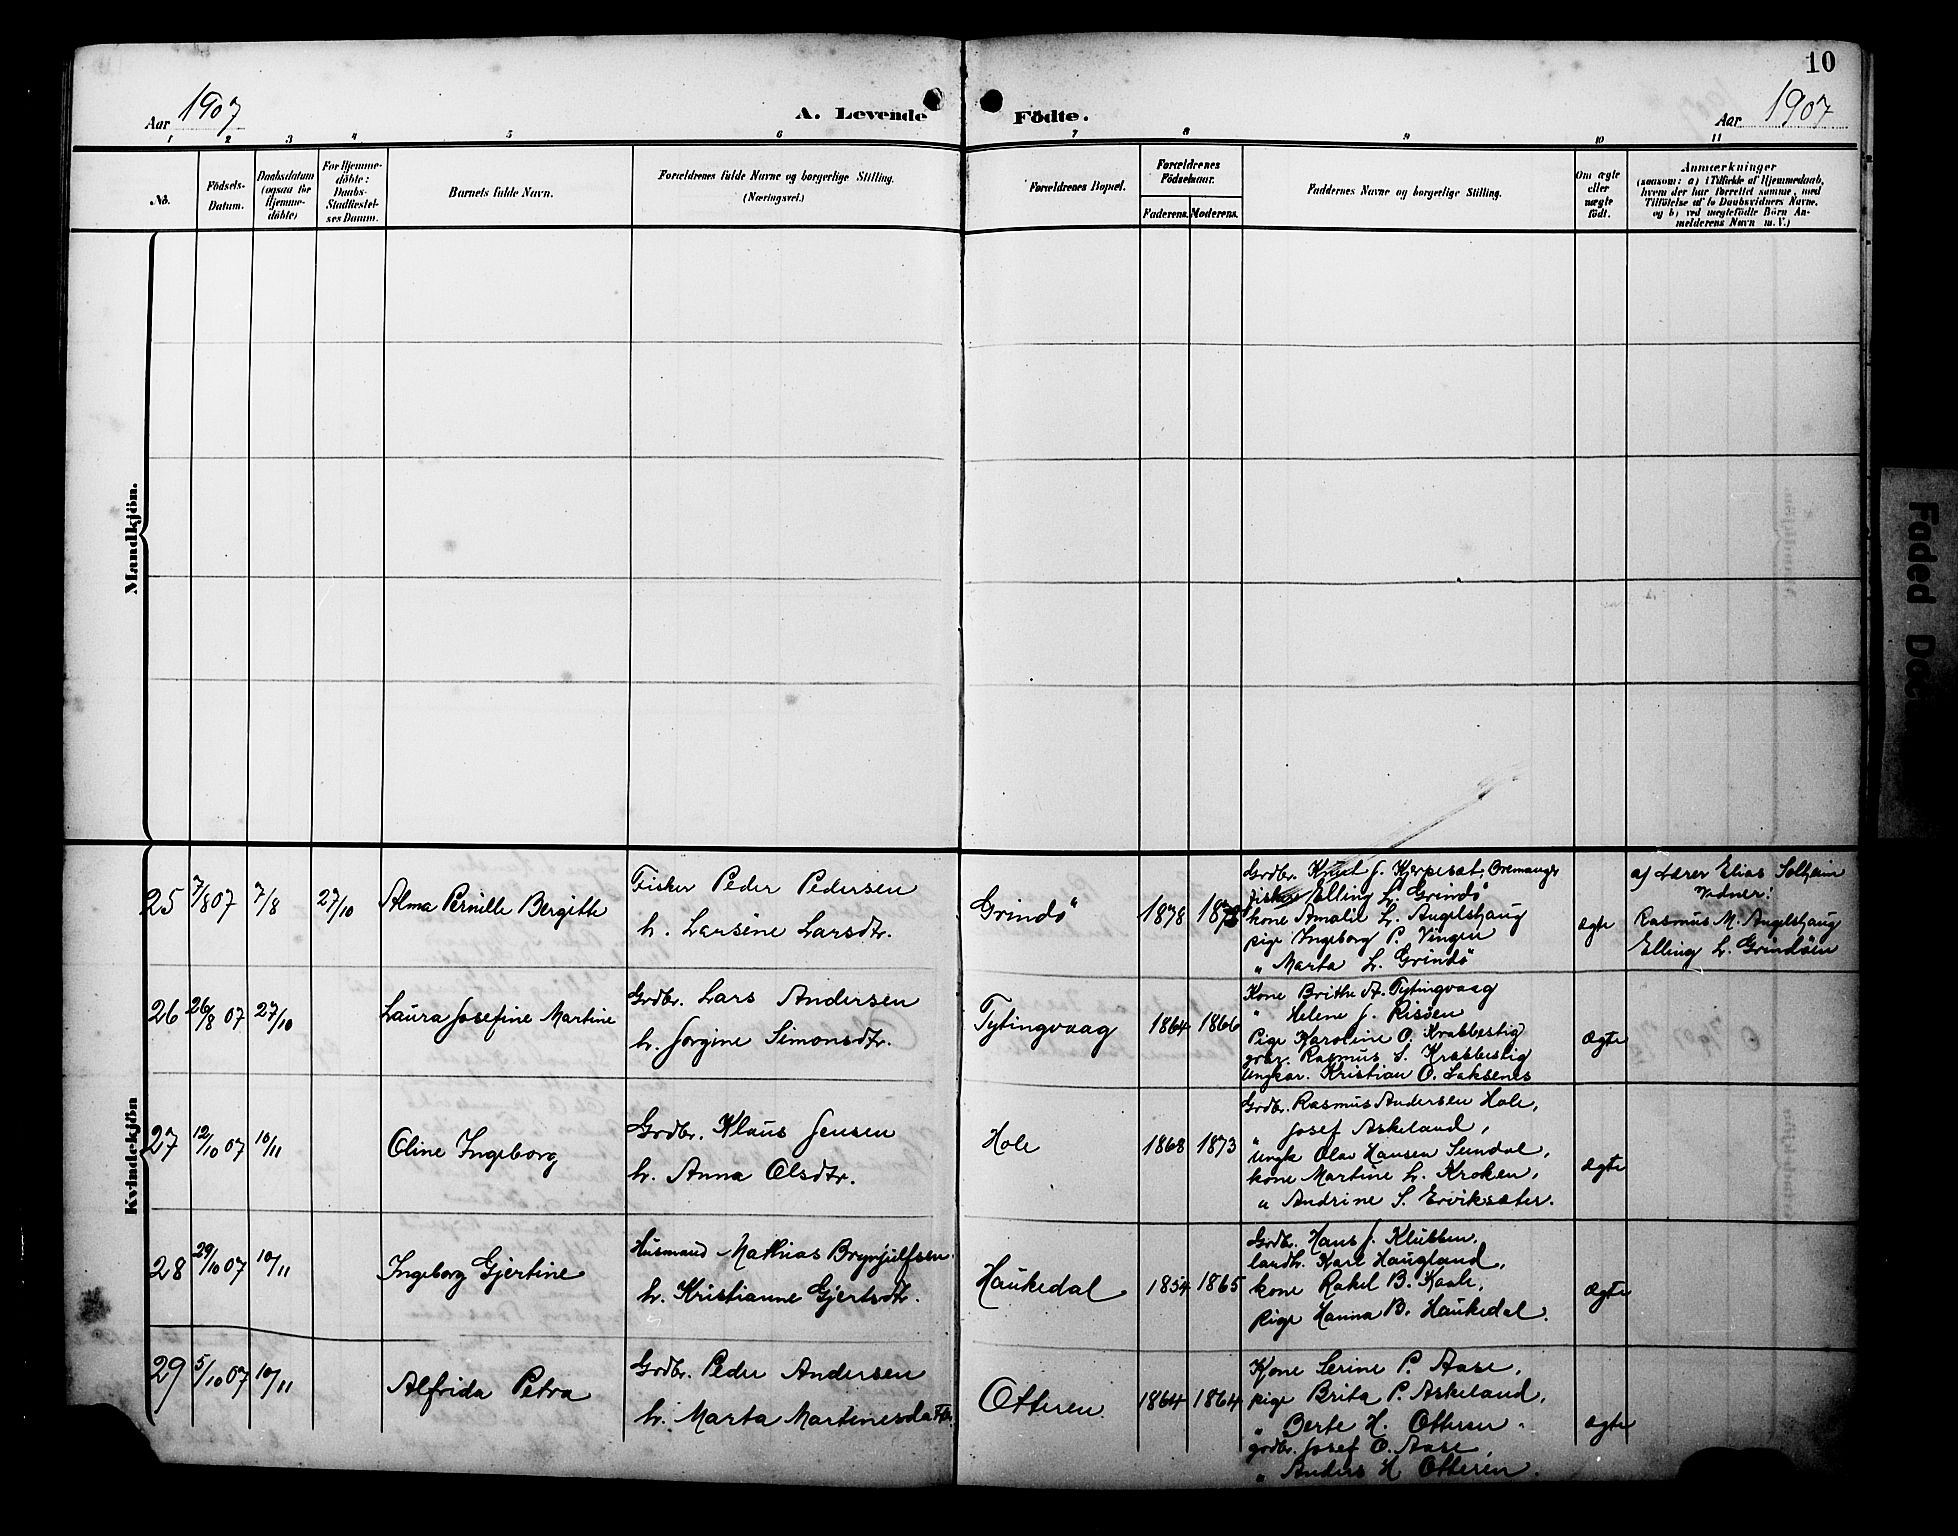 10
Aar 1907
A. Levende Födte.
Aar 1907
1 2 3 4 5 6 7 8 9 10 11
No.
Födsels-
Datum.
Daabsdatum
(ogsaa for
Hjemme-
döbte)
For Hjemme-
döbte:
Daabs-
Stadfæstel-
ses Datum.
Barnets fulde Navn.
Forældrenes fulde Navne og borgerlige Stilling.
(Næringsvei.)
Forældrenes Bopæl.
Forældrenes
Födselsaar.
Faderens. Moderens.
Faddernes Navne og borgerlige Stilling.
Om ægte
eller
uægte
født.
Anmærkninger
(saasom: a) i Tilfælde af Hjemmedaab,
hvem der har forrettet samme, med
Tilföielse af to Daabsvidners Navne,
og b) ved uægtefödte Börn An-
melderens Navn m. V.)
Mandkjön.
Kvindekjön
25 7/8 07 7/8 27/10 Alma Pernille Bergitte
Fisker Peder Pedersen
h. Larsine Larsdtr.
Grindö 1878
Grdbr. Knut J. Kjerpeset, Bremanger
fisker Elling L. Grindö
kone Amalie L. Angelshaug
pige Ingeborg P. Vingen
" Marta L. Grindö
ægte
af Lærer Elias Solheim
Vidner:
Rasmus M. Angelshaug
Elling L. Grindöen
26 26/8 07 27/10 Laura Josefine Martine
Grdbr. Lars Andersen
h. Jorgine Simonsdtr.
Tytingvaag 1864 1866
Kone Brithe A. Tytingvaag
" Helene J. Risöen
Pige Karoline O. Krabbestig
gbr. Rasmus S. Krabbestig
Ungkar. Kristian O. Laksenes
Ægte
27 12/10 07 10/11 Oline Ingeborg
Grdbr. Klaus Jensen
h. Anna Olsdtr.
Hole 1868 1873
Grdbr. Rasmus Andersen Hole,
" Josef Askeland,
Ungk Olav Hansen Sundal,
kone Martine L. Kroken,
" Andrine S. Erviksæter.
ægte
28 29/10 07 10/11 Ingeborg Gjertine
Husmand Mathias Brynjulfsen.
h. Kristianne Gjertsdtr.
Haukedal 1854 1865
Grdbr. Hans J. Klubben,
landh. Karl Haugland,
kone Rakel B. Kaale,
Pige Hanna B. Haukedal.
ægte
29 5/10 07 10/11 Alfrida Petra
Grdbr. Peder Andersen
h. Marta Martinesdatter.
Otteren. 1864 1864
Kone Serine P. Aase,
pige Brita P. Askeland,
" Berte H. Otteren
grdbr. Josef O. Aase,
" Anders H Otteren.
ægte
Faded